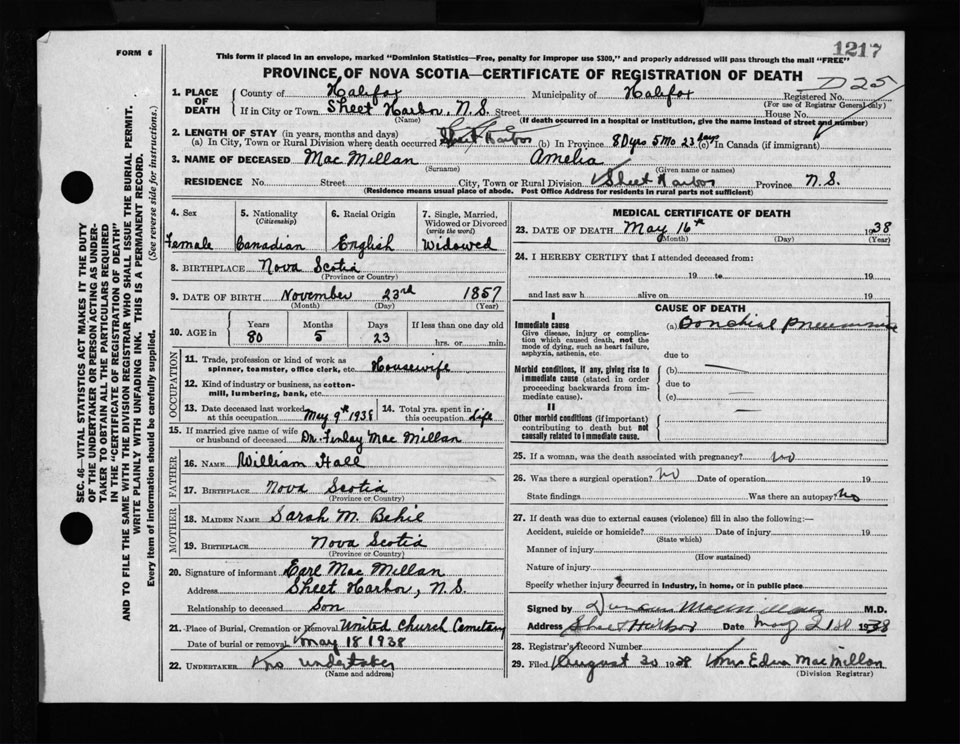 FORM 6
This form if placed in an envelope, marked "Dominion Statistics—Free, penalty for improper use $300," and properly addressed will pass through the mail "FREE"
1217
PROVINCE OF NOVA SCOTIA—CERTIFICATE OF REGISTRATION OF DEATH
725
1. PLACE OF DEATH
County of Halifax Municipality of Halifax Registered No.
(For use of Registrar General only)
If in City or Town Sheet Harbor, N.S. Street House No.
(Name) (If death occurred in a hospital or institution, give the name instead of street and number)
2. LENGTH OF STAY (in years, months and days)
(a) In City, Town or Rural Division where death occurred Sheet Harbor (b) In Province 80 yrs 5 Mo 23 days (c) In Canada (if immigrant)
3. NAME OF DECEASED Mac Millan Amelia
(Surname) (Given name or names)
RESIDENCE No. Street City, Town or Rural Division Sheet Harbor Province N.S.
(Residence means usual place of abode. Post Office Address for residents in rural parts not sufficient)
4. Sex Female
5. Nationality (Citizenship) Canadian
6. Racial Origin English
7. Single, Married, Widowed or Divorced (write the word) Widowed
8. BIRTHPLACE Nova Scotia
(Province or Country)
9. DATE OF BIRTH November 23rd 1857
(Month) (Day) (Year)
10. AGE in Years 80 Months 5 Days 23 If less than one day old hrs. or min.
OCCUPATION
11. Trade, profession or kind of work as spinner, teamster, office clerk, etc. Housewife
12. Kind of industry or business, as cotton-mill, lumbering, bank, etc.
13. Date deceased last worked at this occupation May 9th 1938
14. Total yrs. spent in this occupation Life
15. If married give name of wife or husband of deceased Dr. Finlay Mac Millan
FATHER
16. NAME William Hall
17. BIRTHPLACE Nova Scotia
(Province or Country)
MOTHER
18. MAIDEN NAME Sarah M. Behie
19. BIRTHPLACE Nova Scotia
(Province or Country)
20. Signature of informant Earl Mac Millan
Address Sheet Harbor, N.S.
Relationship to deceased Son
21. Place of Burial, Cremation or Removal United Church Cemetary
Date of burial or removal May 18 1938
22. UNDERTAKER no undertaker
(Name and address)
MEDICAL CERTIFICATE OF DEATH
23. DATE OF DEATH May 16th 1938
(Month) (Day) (Year)
24. I HEREBY CERTIFY that I attended deceased from:
19 to 19
and last saw h alive on 19
CAUSE OF DEATH
I
Immediate cause
Give disease, injury or complication which caused death, not the mode of dying, such as heart failure, asphyxia, asthenia, etc.
(a)
due to
Morbid conditions, if any, giving rise to immediate cause (stated in order proceeding backwards from immediate cause).
(b)
due to
(c)
II
Other morbid conditions (if important) contributing to death but not causally related to immediate cause.
25. If a woman, was the death associated with pregnancy? no
26. Was there a surgical operation? no Date of operation 19
State findings Was there an autopsy? no
27. If death was due to external causes (violence) fill in also the following:—
Accident, suicide or homicide? Date of injury 19
(State which)
Manner of injury
(How sustained)
Nature of injury
Specify whether injury occurred in industry, in home, or in public place
Signed by M.D.
Address Sheet Harbor Date May 1938
28. Registrar's Record Number
29. Filed August 30 1938 Mrs Edna Mac Millan
(Division Registrar)
SEC. 46—VITAL STATISTICS ACT MAKES IT THE DUTY
OF THE UNDERTAKER OR PERSON ACTING AS UNDER-
TAKER TO OBTAIN ALL THE PARTICULARS REQUIRED
IN THE "CERTIFICATE OF REGISTRATION OF DEATH"
AND TO FILE THE SAME WITH THE DIVISION REGISTRAR WHO SHALL ISSUE THE BURIAL PERMIT.
WRITE PLAINLY WITH UNFADING INK. THIS IS A PERMANENT RECORD.
Every item of information should be carefully supplied. (See reverse side for instructions.)